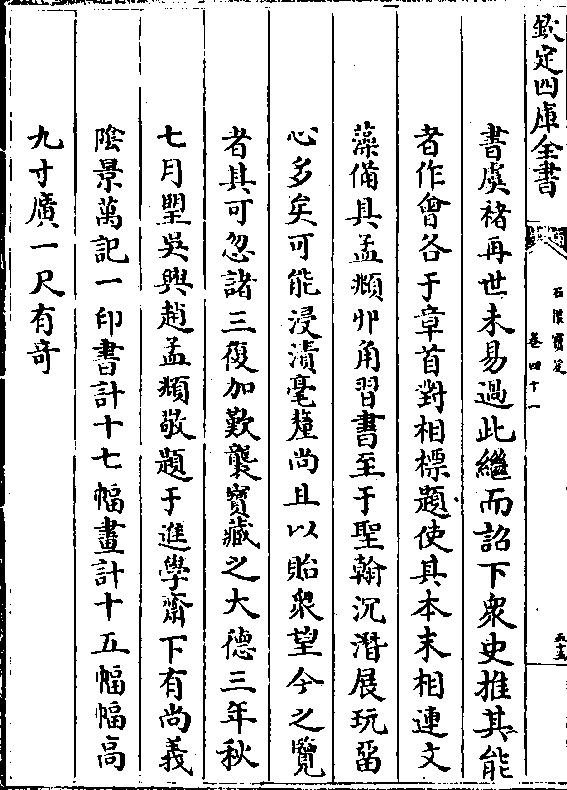 欽定四庫全書
石渠寶笈
卷四十一
書虞褚再世未易過此繼而詔下衆史推其能
者作會各于章首對相標題使其本末相連文
藻備具孟頫丱角習書至于聖翰沉潛展玩留
心多矣可能浸漬毫釐尚且以貽衆望今之覽
者具可忽諸三復加歎襲寶藏之大德三年秋
七月朢吳興趙孟頫敬題于進學齋下有尚義
陰景萬記一印書計十七幅畫計十五幅幅高
九寸廣一尺有奇